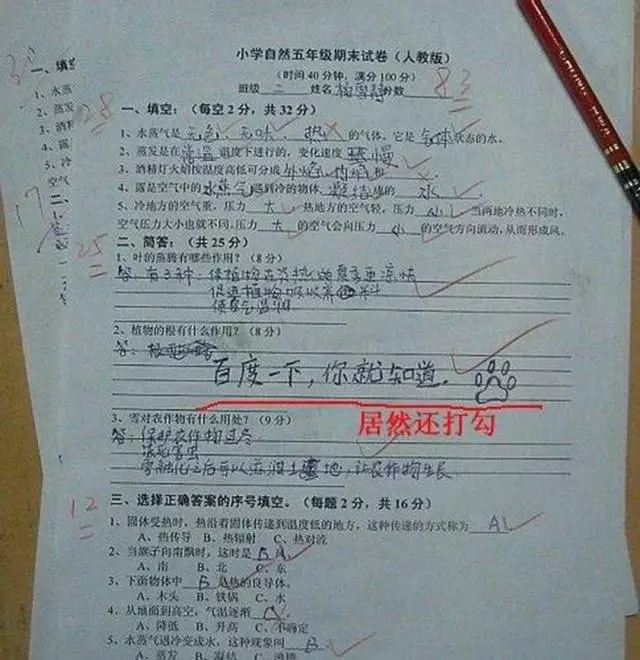 小学自然五年级期末试卷（人教版）
（时间 40 分钟，满分 100 分）
班级 二 姓名 分数 83
28
一、填空：（每空 2 分，共 32 分）
1、水蒸气是 无色 无味 热 的气体。它是 气体 状态的水。
2、蒸发是在 常温 温度下进行的，变化速度 慢
3、酒精灯火焰按温度高低可分成 外焰
4、露是空气中的 水蒸气 遇到冷的物体 凝结 成的 水
5、冷地方的空气重，压力 大 热地方的空气轻，压力 小 当两地冷热不同时，
空气压力大小也就不同。压力 大 的空气会向压力 小 的空气方向流动，从而形成风。
25
二、简答：（共 25 分）
1、叶的蒸腾有哪些作用？（8 分）
答：有三种：保植物在炎热的夏季
促进植物吸收养料
使空气湿润
2、植物的根有什么作用？（8 分）
答：根
百度一下，你就知道。
居然还打勾
3、雪对农作物有什么用处？（9 分）
答：保护农作物过冬
冻死害虫
雪融化之后可以 土地，让农作物生长
12
三、选择正确答案的序号填空。（每题 2 分，共 16 分）
1、固体受热时，热沿着固体传到温度低的地方，这种传递的方式称为 A
A、热传导 B、热辐射 C、热对流
2、当旗子向南飘时，这时是 B 风。
A、南 B、北 C、东
3、下面物体中 B 是热的良导体。
A、木头 B、铁锅 C、水
4、从地面到高空，气温逐渐
A、降低 B、升高 C、不确定
5、水蒸气遇冷变成水，这种现象叫 B
A、蒸发 B、凝结
17
一、填空
1、水
2、蒸发
3、酒精
4、露
5、冷
空气
二、